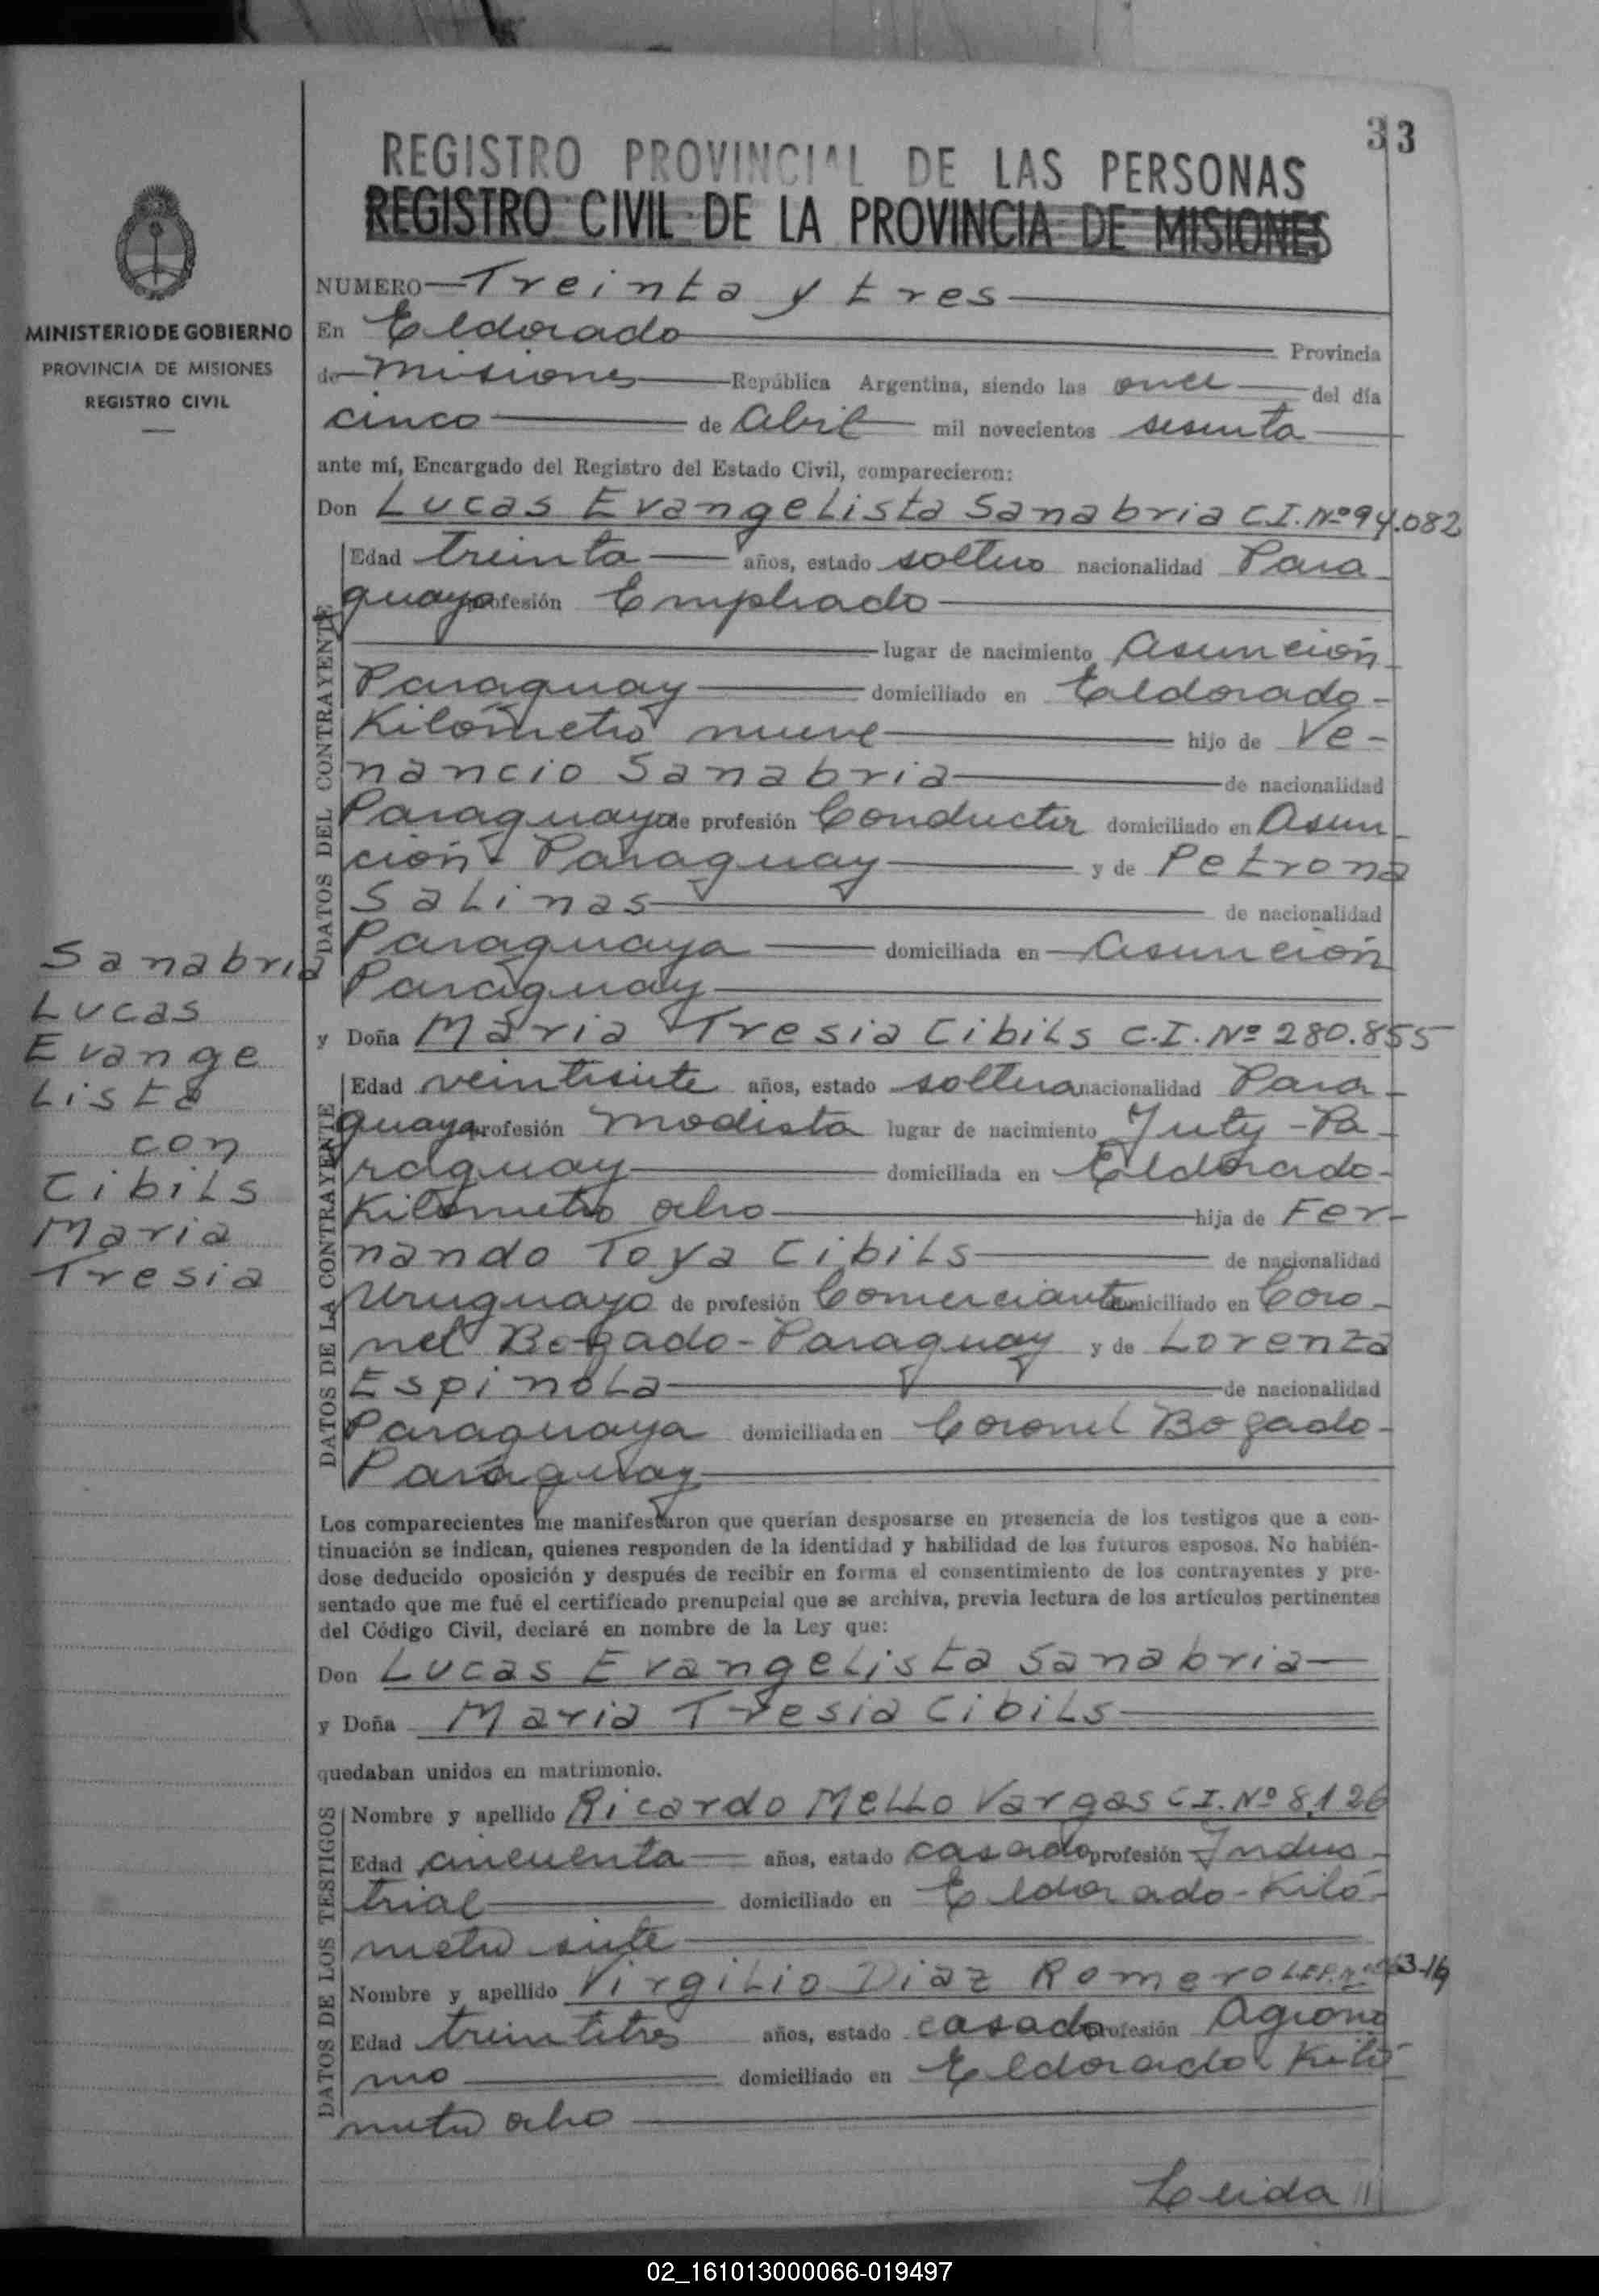 33
REGISTRO PROVINCIAL DE LAS PERSONAS
REGISTRO CIVIL DE LA PROVINCIA DE MISIONES
MINISTERIO DE GOBIERNO
PROVINCIA DE MISIONES
REGISTRO CIVIL
NUMERO Treinta y tres
En Eldorado Provincia
de Misiones República Argentina, siendo las once del día
cinco de Abril mil novecientos sesenta
ante mí, Encargado del Registro del Estado Civil, comparecieron:
Don Lucas Evangelista Sanabria C.I. Nº 94.082
DATOS DEL CONTRAYENTE
Edad treinta años, estado soltero nacionalidad Para
guaya profesión Empleado
lugar de nacimiento Asunción
Paraguay domiciliado en Eldorado-
Kilómetro nueve hijo de Ve-
nancio Sanabria de nacionalidad
Paraguaya de profesión Conductor domiciliado en Asun
ción - Paraguay y de Petrona
Salinas de nacionalidad
Paraguaya domiciliada en Asunción
Paraguay
Sanabria
Lucas
Evange
Lista
con
Cibils
Maria
Tresia
y Doña Maria Tresia Cibils C.I. Nº 280.855
DATOS DE LA CONTRAYENTE
Edad veintisiete años, estado soltera nacionalidad Para-
guaya profesión Modista lugar de nacimiento Yuty - Pa
raguay domiciliada en Eldorado-
Kilómetro ocho hija de Fer-
nando Toya Cibils de nacionalidad
Uruguayo de profesión Comerciante domiciliado en Coro-
nel Bogado - Paraguay y de Lorenza
Espinola de nacionalidad
Paraguaya domiciliada en Coronel Bogado-
Paraguay
Los comparecientes me manifestaron que querían desposarse en presencia de los testigos que a con-
tinuación se indican, quienes responden de la identidad y habilidad de los futuros esposos. No habién-
dose deducido oposición y después de recibir en forma el consentimiento de los contrayentes y pre-
sentado que me fué el certificado prenupcial que se archiva, previa lectura de los artículos pertinentes
del Código Civil, declaré en nombre de la Ley que:
Don Lucas Evangelista Sanabria
y Doña Maria Tresia Cibils
quedaban unidos en matrimonio.
DATOS DE LOS TESTIGOS
Nombre y apellido Ricardo Mello Vargas C.I. Nº 8.126
Edad cincuenta años, estado casado profesión Indus-
trial domiciliado en Eldorado - Kiló-
metro siete
Nombre y apellido Virgilio Diaz Romero
Edad treintitres años, estado casado profesión Agrono
mo domiciliado en Eldorado Kiló
metro ocho
Leida
02_161013000066-019497